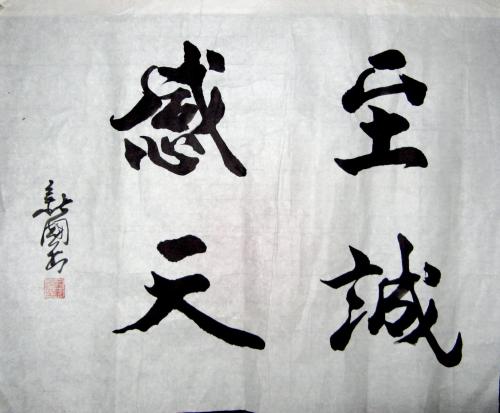 至誠
感天